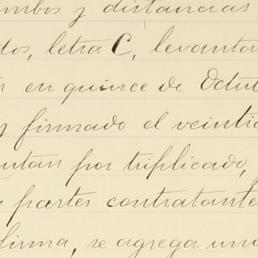 mbos y distancias
dos, letra C, levanta
en quince de Octu
y firmado el veinti
utan por triplicado,
partes contratante
firma, se agrega una